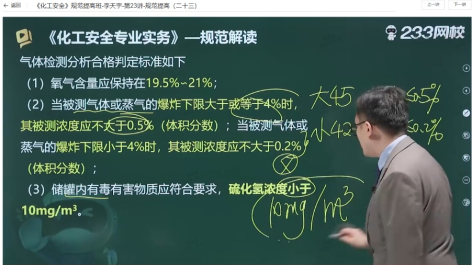 返回 《化工安全》规范提高班-李天宇-第23讲-规范提高（二十三）
《化工安全专业实务》—规范解读
233网校
气体检测分析合格判定标准如下
（1）氧气含量应保持在19.5%~21%；
（2）当被测气体或蒸气的爆炸下限大于或等于4%时，
其被测浓度应不大于0.5%（体积分数）；当被测气体或
蒸气的爆炸下限小于4%时，其被测浓度应不大于0.2%
（体积分数）；
（3）储罐内有毒有害物质应符合要求，硫化氢浓度小于
10mg/m³。
大45
小42
10mg/m³